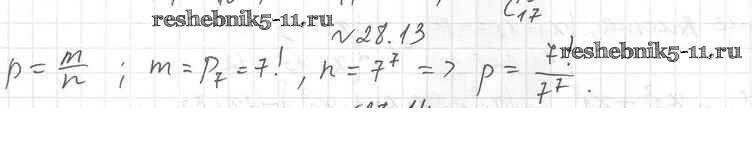 C₁₇
reshebnik5-11.ru
№28.13
p = m/n ; m = P₇ = 7! , n = 7⁷ => p = 7!/7⁷ .
reshebnik5-11.ru